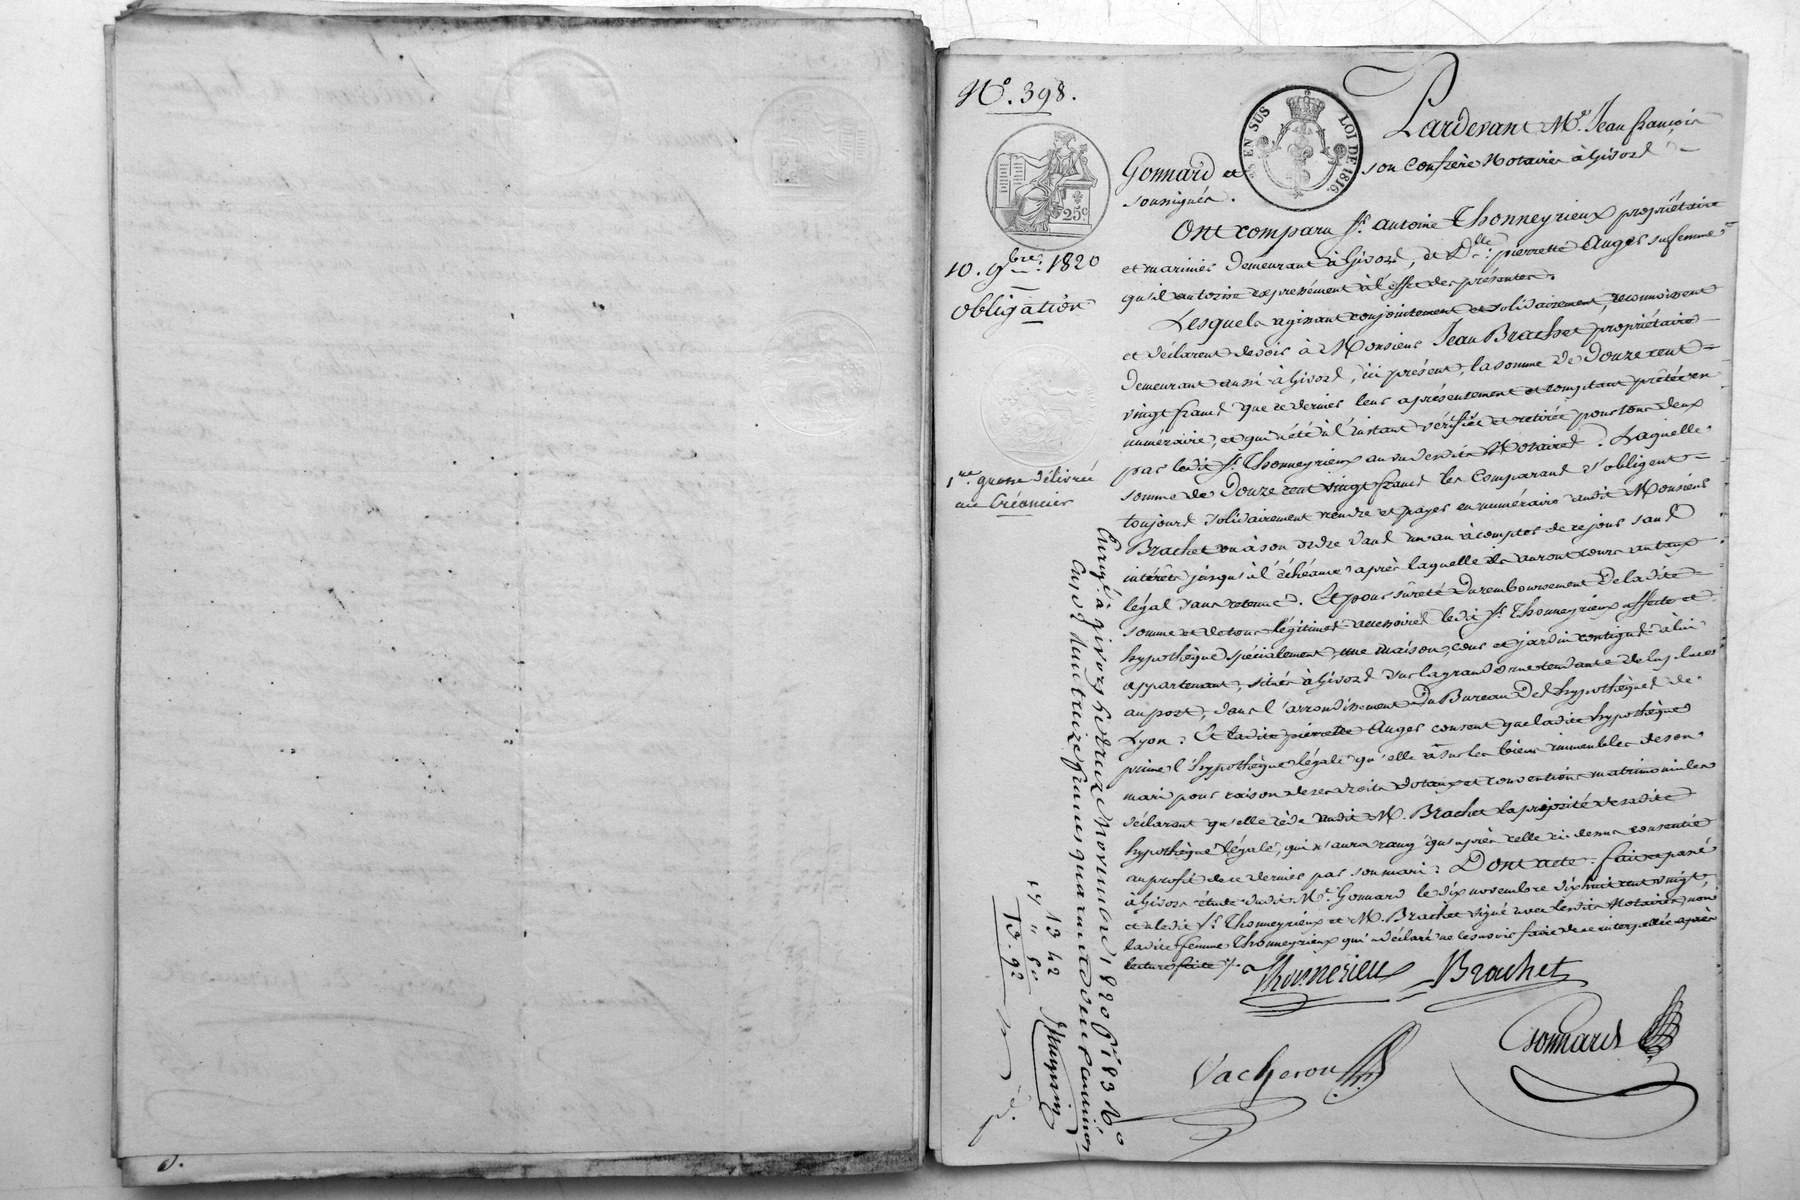 N.° 398.
EN SUS
LOI DE 1816.
25.c
10. 9bre. 1820
Obligation
1re. grosse délivrée
au Créancier
Pardevant Me. Jean françois
Gonnard et son Confrère Notaires à Givors
soussignés.
Ont comparu Sr. antoine Thonneyrieux propriétaire
et marinier demeurant à Givors, et Dlle. pierrette Auger sa femme
qu'il autorise expressément à l'effet des présentes.
Lesquels agissant conjointement et solidairement, reconnoissent
et déclarent devoir à Monsieur Jean Brachet propriétaire
demeurant aussi à Givors, ici présent, la somme de Douze cent
vingt francs que ce dernier leur a présentement et comptant prêtée en
numéraire, et qui a été à l'instant vérifiée et retirée pour tous deux
par ledit Sr. Thonneyrieux au vu desdits Notaires. Laquelle
somme de Douze cent vingt francs les Comparans s'obligent
toujours solidairement rendre et payer en numéraire audit Monsieur
Brachet ou à son ordre dans un an à compter de ce jour sans
intérêts jusqu'à l'échéance après laquelle ils auront cours au taux
légal sans retenue. Et pour sûreté du remboursement de ladite
somme et de tous légitimes accessoires ledit Sr. Thonneyrieux affecte et
hypothèque spécialement, une maison, cour et jardin contigus à lui
appartenant, situés à Givors sur la grande rue tendante de la place
au port, dans l'arrondissement du Bureau des hypothèques de
Lyon. Et ladite pierrette Auger consent que ladite hypothèque
prime l'hypothèque légale qu'elle a sur les biens immeubles de son
mari pour raison de ses droits dotaux et conventions matrimoniales
déclarant qu'elle cède audit M. Brachet la priorité de sadite
hypothèque légale, qui n'aura rang qu'après celle ci-dessus consentie
au profit de ce dernier par son mari. Dont acte. fait et passé
à Givors étude dudit Me. Gonnard le dix novembre dix huit cent vingt
et a ledit Sr. Thonneyrieux et M. Brachet signé avec lesdits Notaires, non
ladite femme Thonneyrieux qui a déclaré ne le savoir faire de ce interpellée après
lecture faite.
Thonnerieux Brachet
Gonnard
Vacheron
Enregé à Givors le treize Novembre 1820 f° 183 V°
treize francs quarante deux centimes
13 42